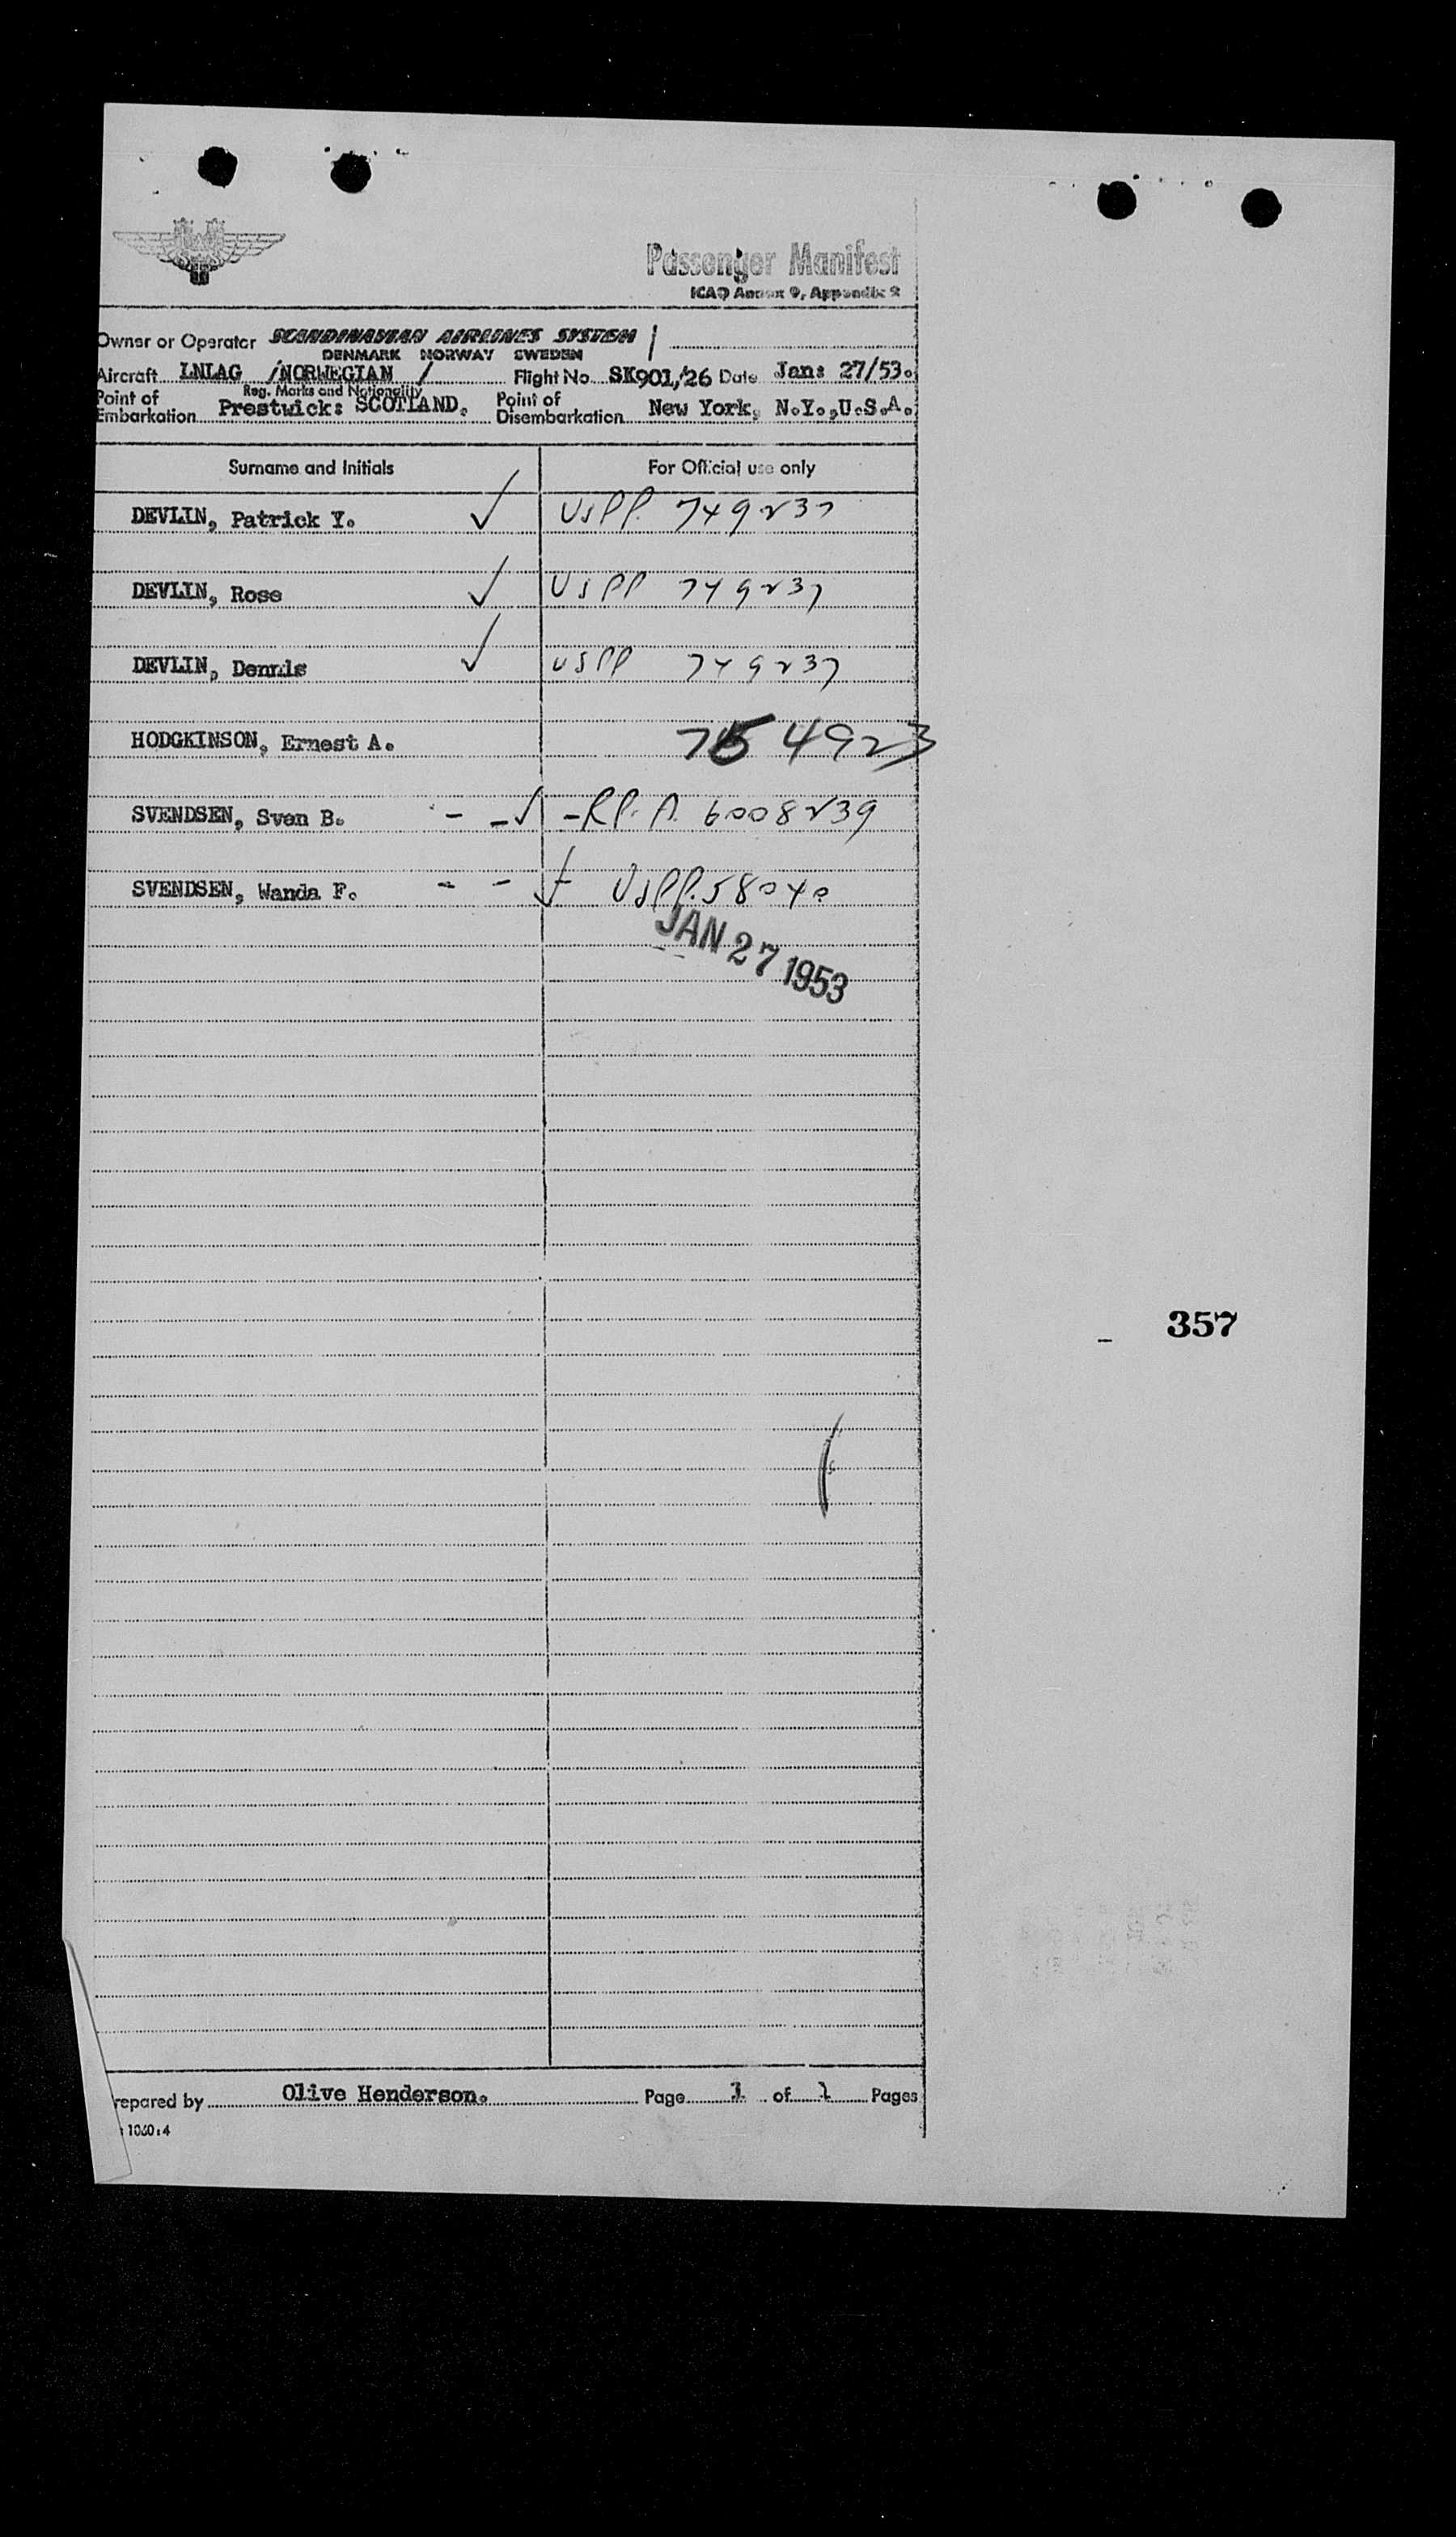 Passenger Manifest
ICAO Annex 9, Appendix 2
Owner or Operator SCANDINAVIAN AIRLINES SYSTEM /
DENMARK NORWAY SWEDEN
Aircraft LNLAG /NORWEGIAN / Flight No. SK901/26 Date Jan: 27/53.
Reg. Marks and Nationality
Point of Embarkation Prestwick: SCOTLAND. Point of Disembarkation New York, N.Y.,U.S.A.
Surname and Initials For Official use only
DEVLIN, Patrick Y. ✓ USPP. 749237
DEVLIN, Rose ✓ USPP 749237
DEVLIN, Dennis ✓ USPP 749237
HODGKINSON, Ernest A. 4923
SVENDSEN, Sven B. - - ✓ - RP. A. 6008239
SVENDSEN, Wanda F. - - ✓ USPP. 58040
JAN 27 1953
357
repared by Olive Henderson. Page 1 of 1 Pages
: 1030:4